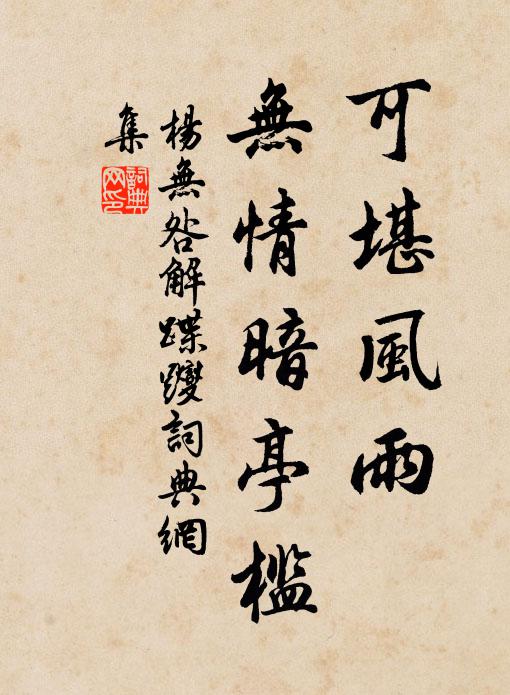 可堪風雨
無情暗亭檻
楊無咎解蹀躞詞典網
集
詞典網印